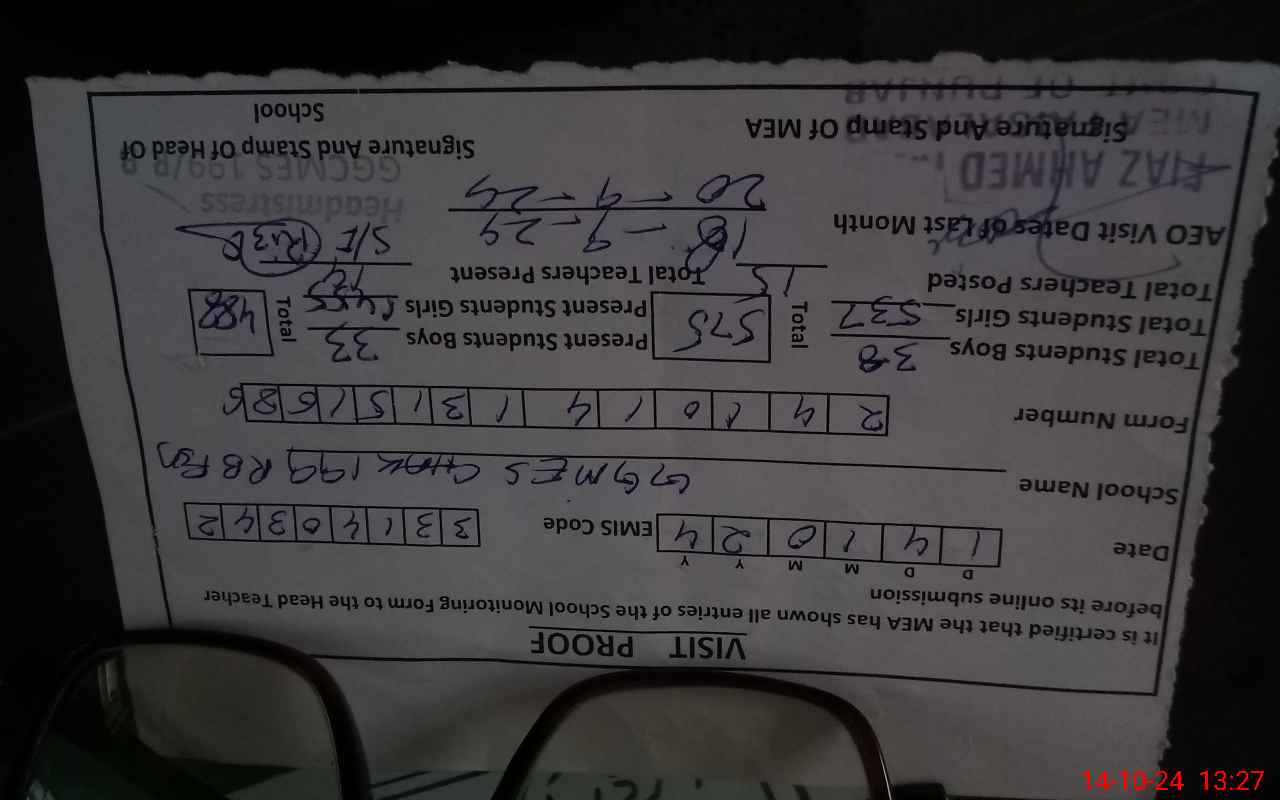 VISIT PROOF
It is certified that the MEA has shown all entries of the School Monitoring Form to the Head Teacher
before its online submission
D D M M Y Y
Date 1 4 1 0 2 4 EMIS Code 3 3 3 1 4 0 3 4 2
School Name GGMES CHAK 199 RB FSD
Form Number 2 4 1 0 1 4 1 3 1 5 1 5 8 5
Total Students Boys 38 Total 575 Present Students Boys 33 Total 488
Total Students Girls 537 Present Students Girls 455
Total Teachers Posted 15 Total Teachers Present
AEO Visit Dates of Last Month 18-9-24
20-9-24
Headmistress
GGCMES 199/R.B
RIAZ AHMED
MEA
GOVT OF PUNJAB
Signature And Stamp Of MEA Signature And Stamp Of Head Of
School
14-10-24 13:27